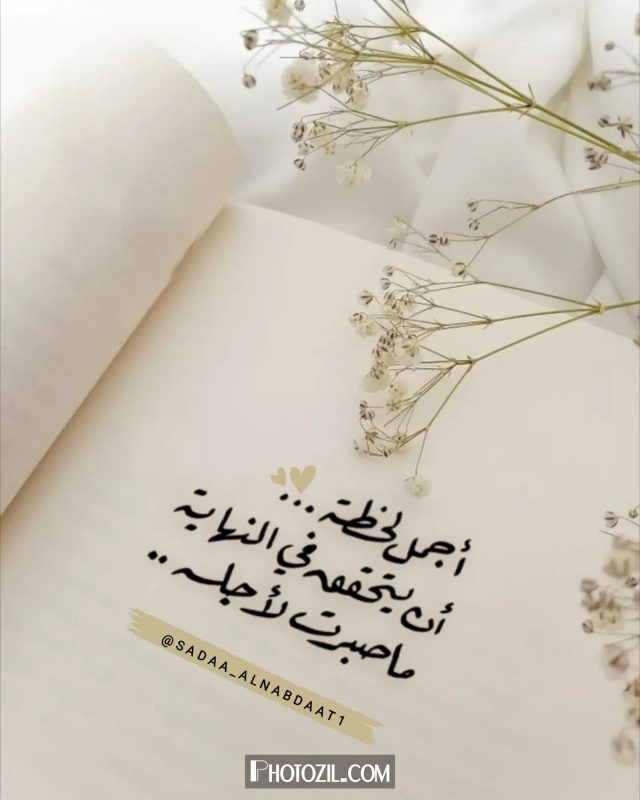 أجمل لحظة ...
أن يتحقق في النهاية
ما صبرت لأجله ..
@SADAA_ALNABDAAT1
PHOTOZIL.COM